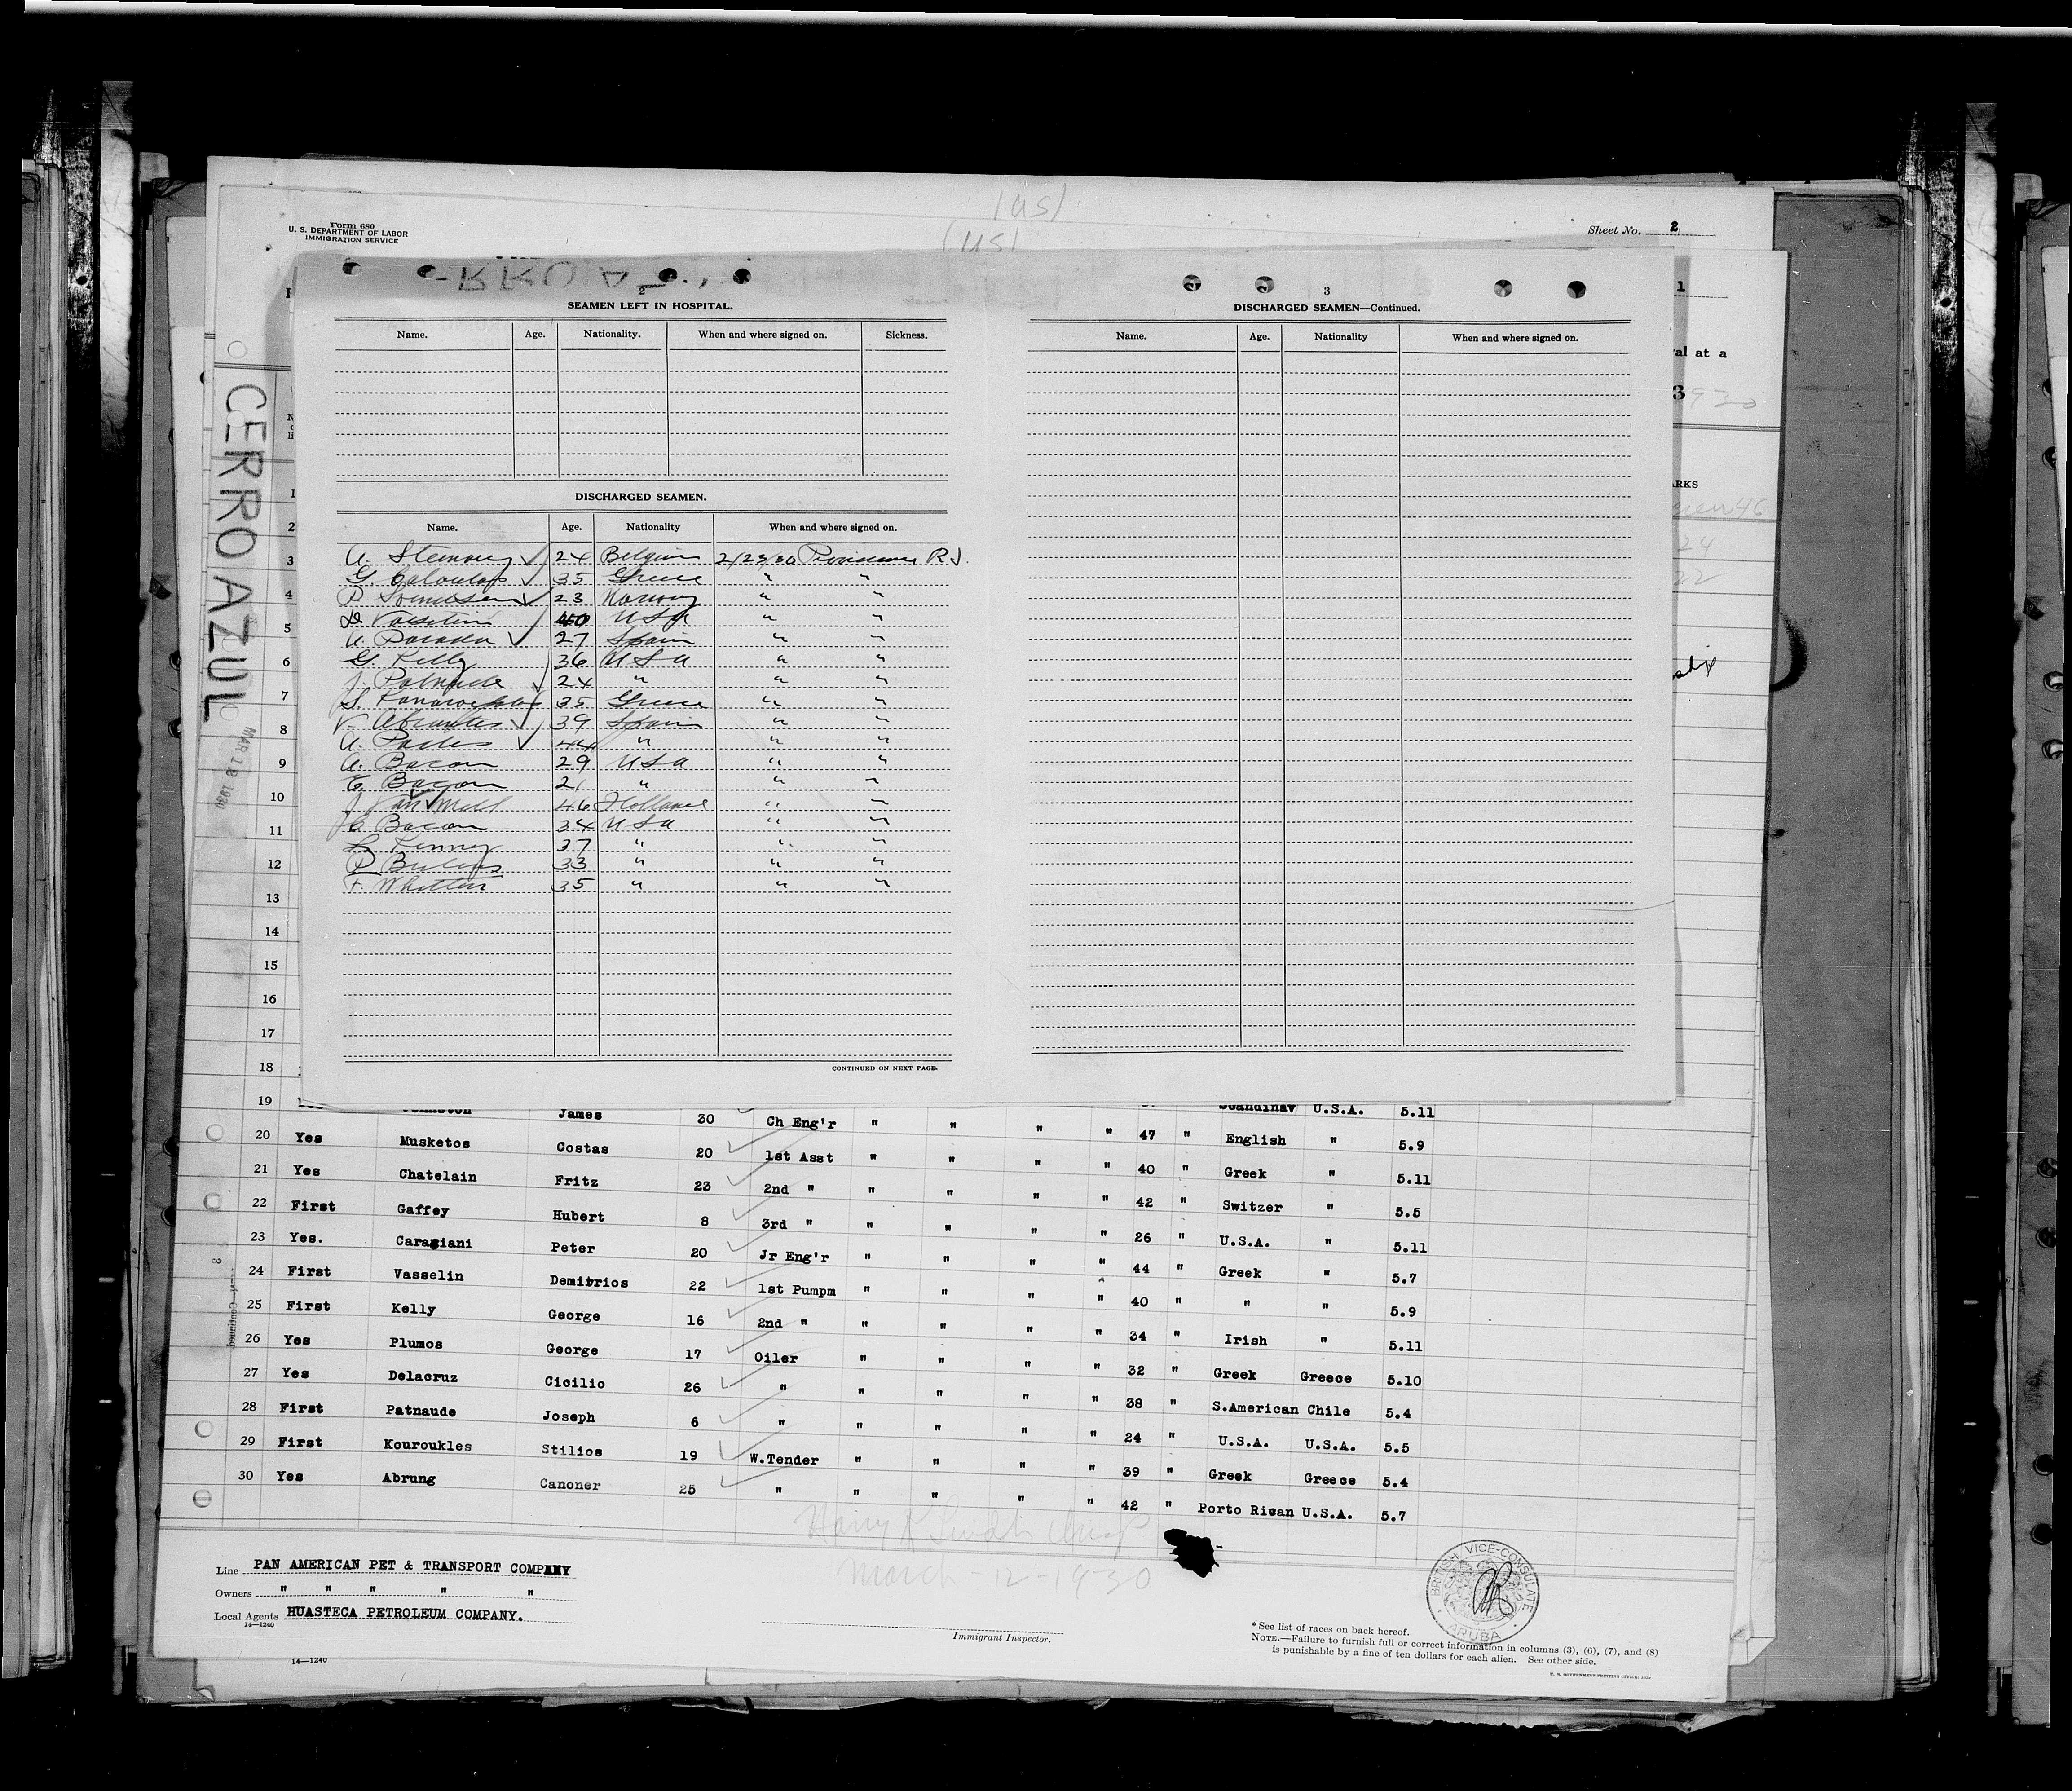 (US)
(US)
Form 680
U. S. DEPARTMENT OF LABOR
IMMIGRATION SERVICE
Sheet No. 2
1
al at a
3
930
ARKS
CERRO AZUL
MAR 12 1930
2
SEAMEN LEFT IN HOSPITAL.
Name. Age. Nationality. When and where signed on. Sickness.
DISCHARGED SEAMEN.
Name. Age. Nationality When and where signed on.
24 Belgium 2/23/30 Providence R.I.
G. 35 Greece " "
23 Norway " "
D. 40 USA " "
27 Spain " "
G. Kelly 36 USA " "
J. Patnaude 24 " " "
S. 35 Greece " "
V. Abrantes 39 Spain " "
A. 44 " " "
A. Bacon 29 USA " "
E. Bacon 21 " " "
J Van Mill 46 Holland " "
Bacon 34 USA " "
L. Kenney 37 " " "
P 33 " " "
F. Whitten 35 " " "
CONTINUED ON NEXT PAGE.
3
DISCHARGED SEAMEN—Continued.
Name. Age. Nationality When and where signed on.
1
2
3
4
5
6
7
8
9
10
11
12
13
14
15
16
17
18
19 Johnston James 30 Ch Eng'r " " " " Scandinav U.S.A. 5.11
20 Yes Musketos Costas 20 1st Asst " " " " 47 " English " 5.9
21 Yes Chatelain Fritz 23 2nd " " " " " 40 " Greek " 5.11
22 First Gaffey Hubert 8 3rd " " " " " 42 " Switzer " 5.5
23 Yes. Caragiani Peter 20 Jr Eng'r " " " " 26 " U.S.A. " 5.11
24 First Vasselin Demitrios 22 1st Pumpm " " " " 44 " Greek " 5.7
25 First Kelly George 16 2nd " " " " " 40 " " " 5.9
26 Yes Plumos George 17 Oiler " " " " 34 " Irish " 5.11
27 Yes Delacruz Cicilio 26 " " " " " 32 " Greek Greece 5.10
28 First Patnaude Joseph 6 " " " " " 38 " S.American Chile 5.4
29 First Kouroukles Stilios 19 W.Tender " " " " 24 " U.S.A. U.S.A. 5.5
30 Yes Abrung Canoner 25 " " " " " 39 " Greek Greece 5.4
42 " Porto Rican U.S.A. 5.7
March -12-1930
Line PAN AMERICAN PET & TRANSPORT COMPANY
Owners " " " " "
Local Agents HUASTECA PETROLEUM COMPANY.
14—1240
Immigrant Inspector.
BRITISH VICE-CONSULATE
ARUBA
*See list of races on back hereof.
NOTE.—Failure to furnish full or correct information in columns (3), (6), (7), and (8)
is punishable by a fine of ten dollars for each alien. See other side.
14—1240